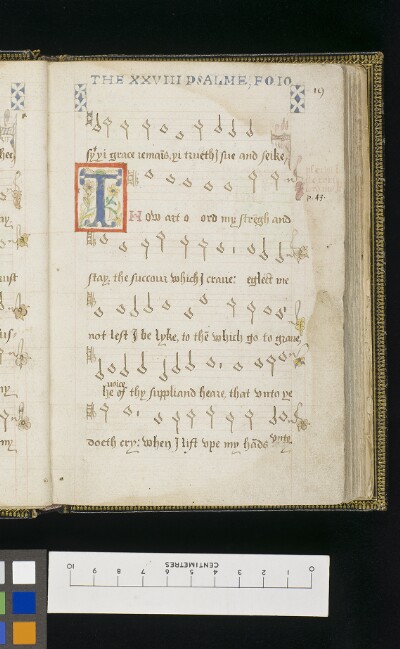 THE XXVIII PSALME, FO 10
sy yi grace remais, yi trueth J sue and seike,
T How art o ord my stregh and
p. 45.
stay, the succour which J craue: eglect me
not lest J be lyke, to thē which go to graue,
voice
he of thy suppliand heare, that vnto ye
doeth cry: when J lift vpe my hāds vnto
CENTIMETRES
0 1 2 3 4 5 6 7 8 9 10